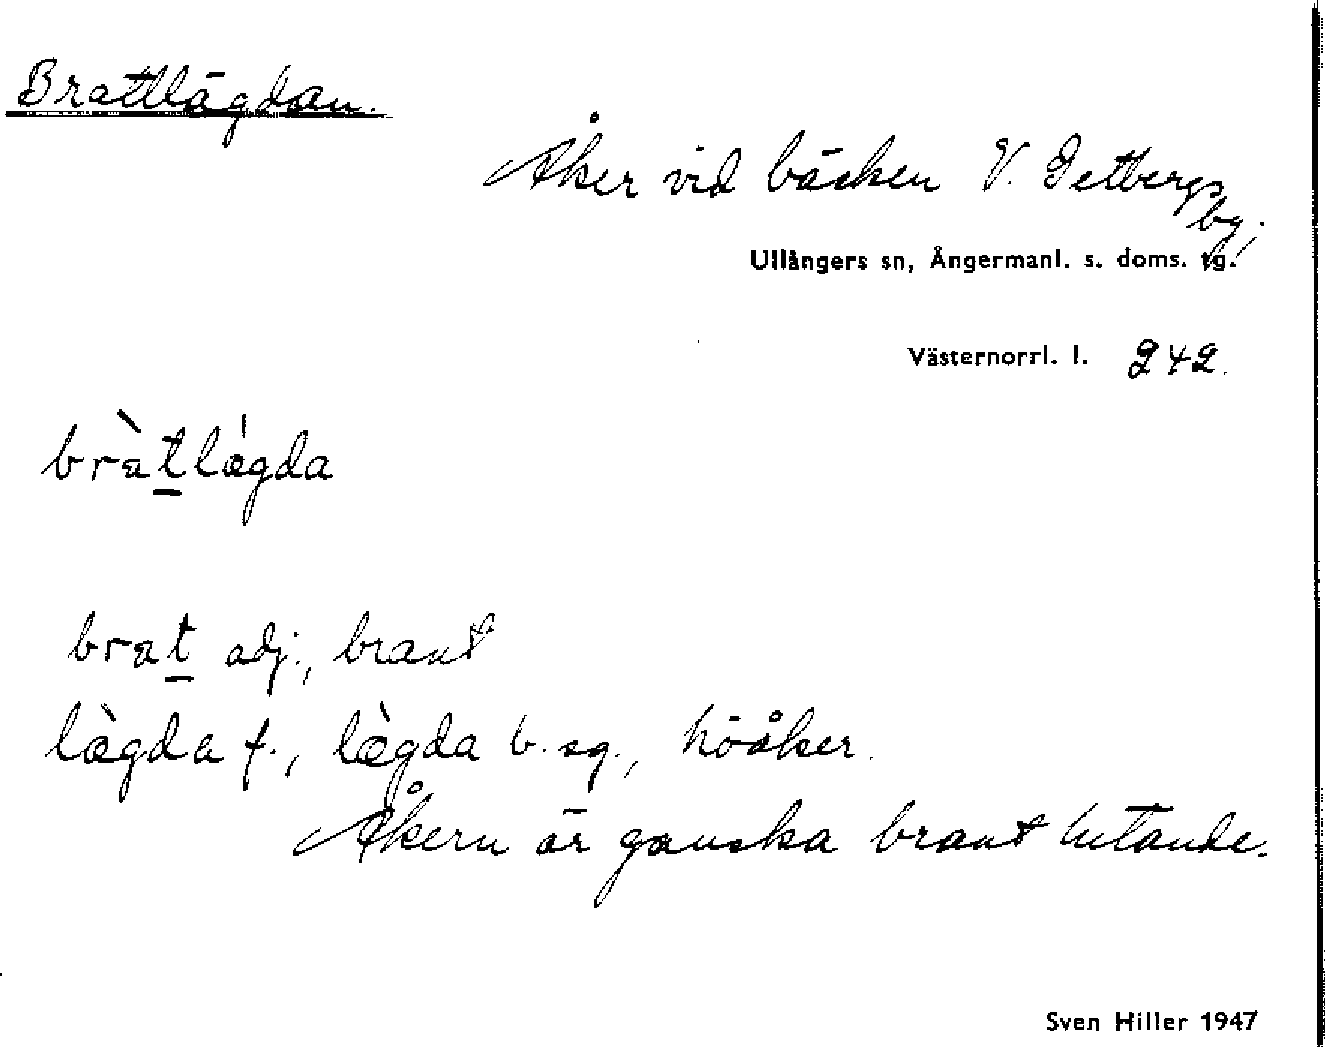 Brattlägdan.
Åker vid bäcken V. Getbergs
by;
Ullångers sn, Ångermanl. s. doms. tg.
Västernorrl. l. 242.
bràt̲lægda
brat̲ adj., brant
læ̀gda f., læ̀gda b. sg., höåker.
Åkern är ganska brant lutande.
Sven Hiller 1947